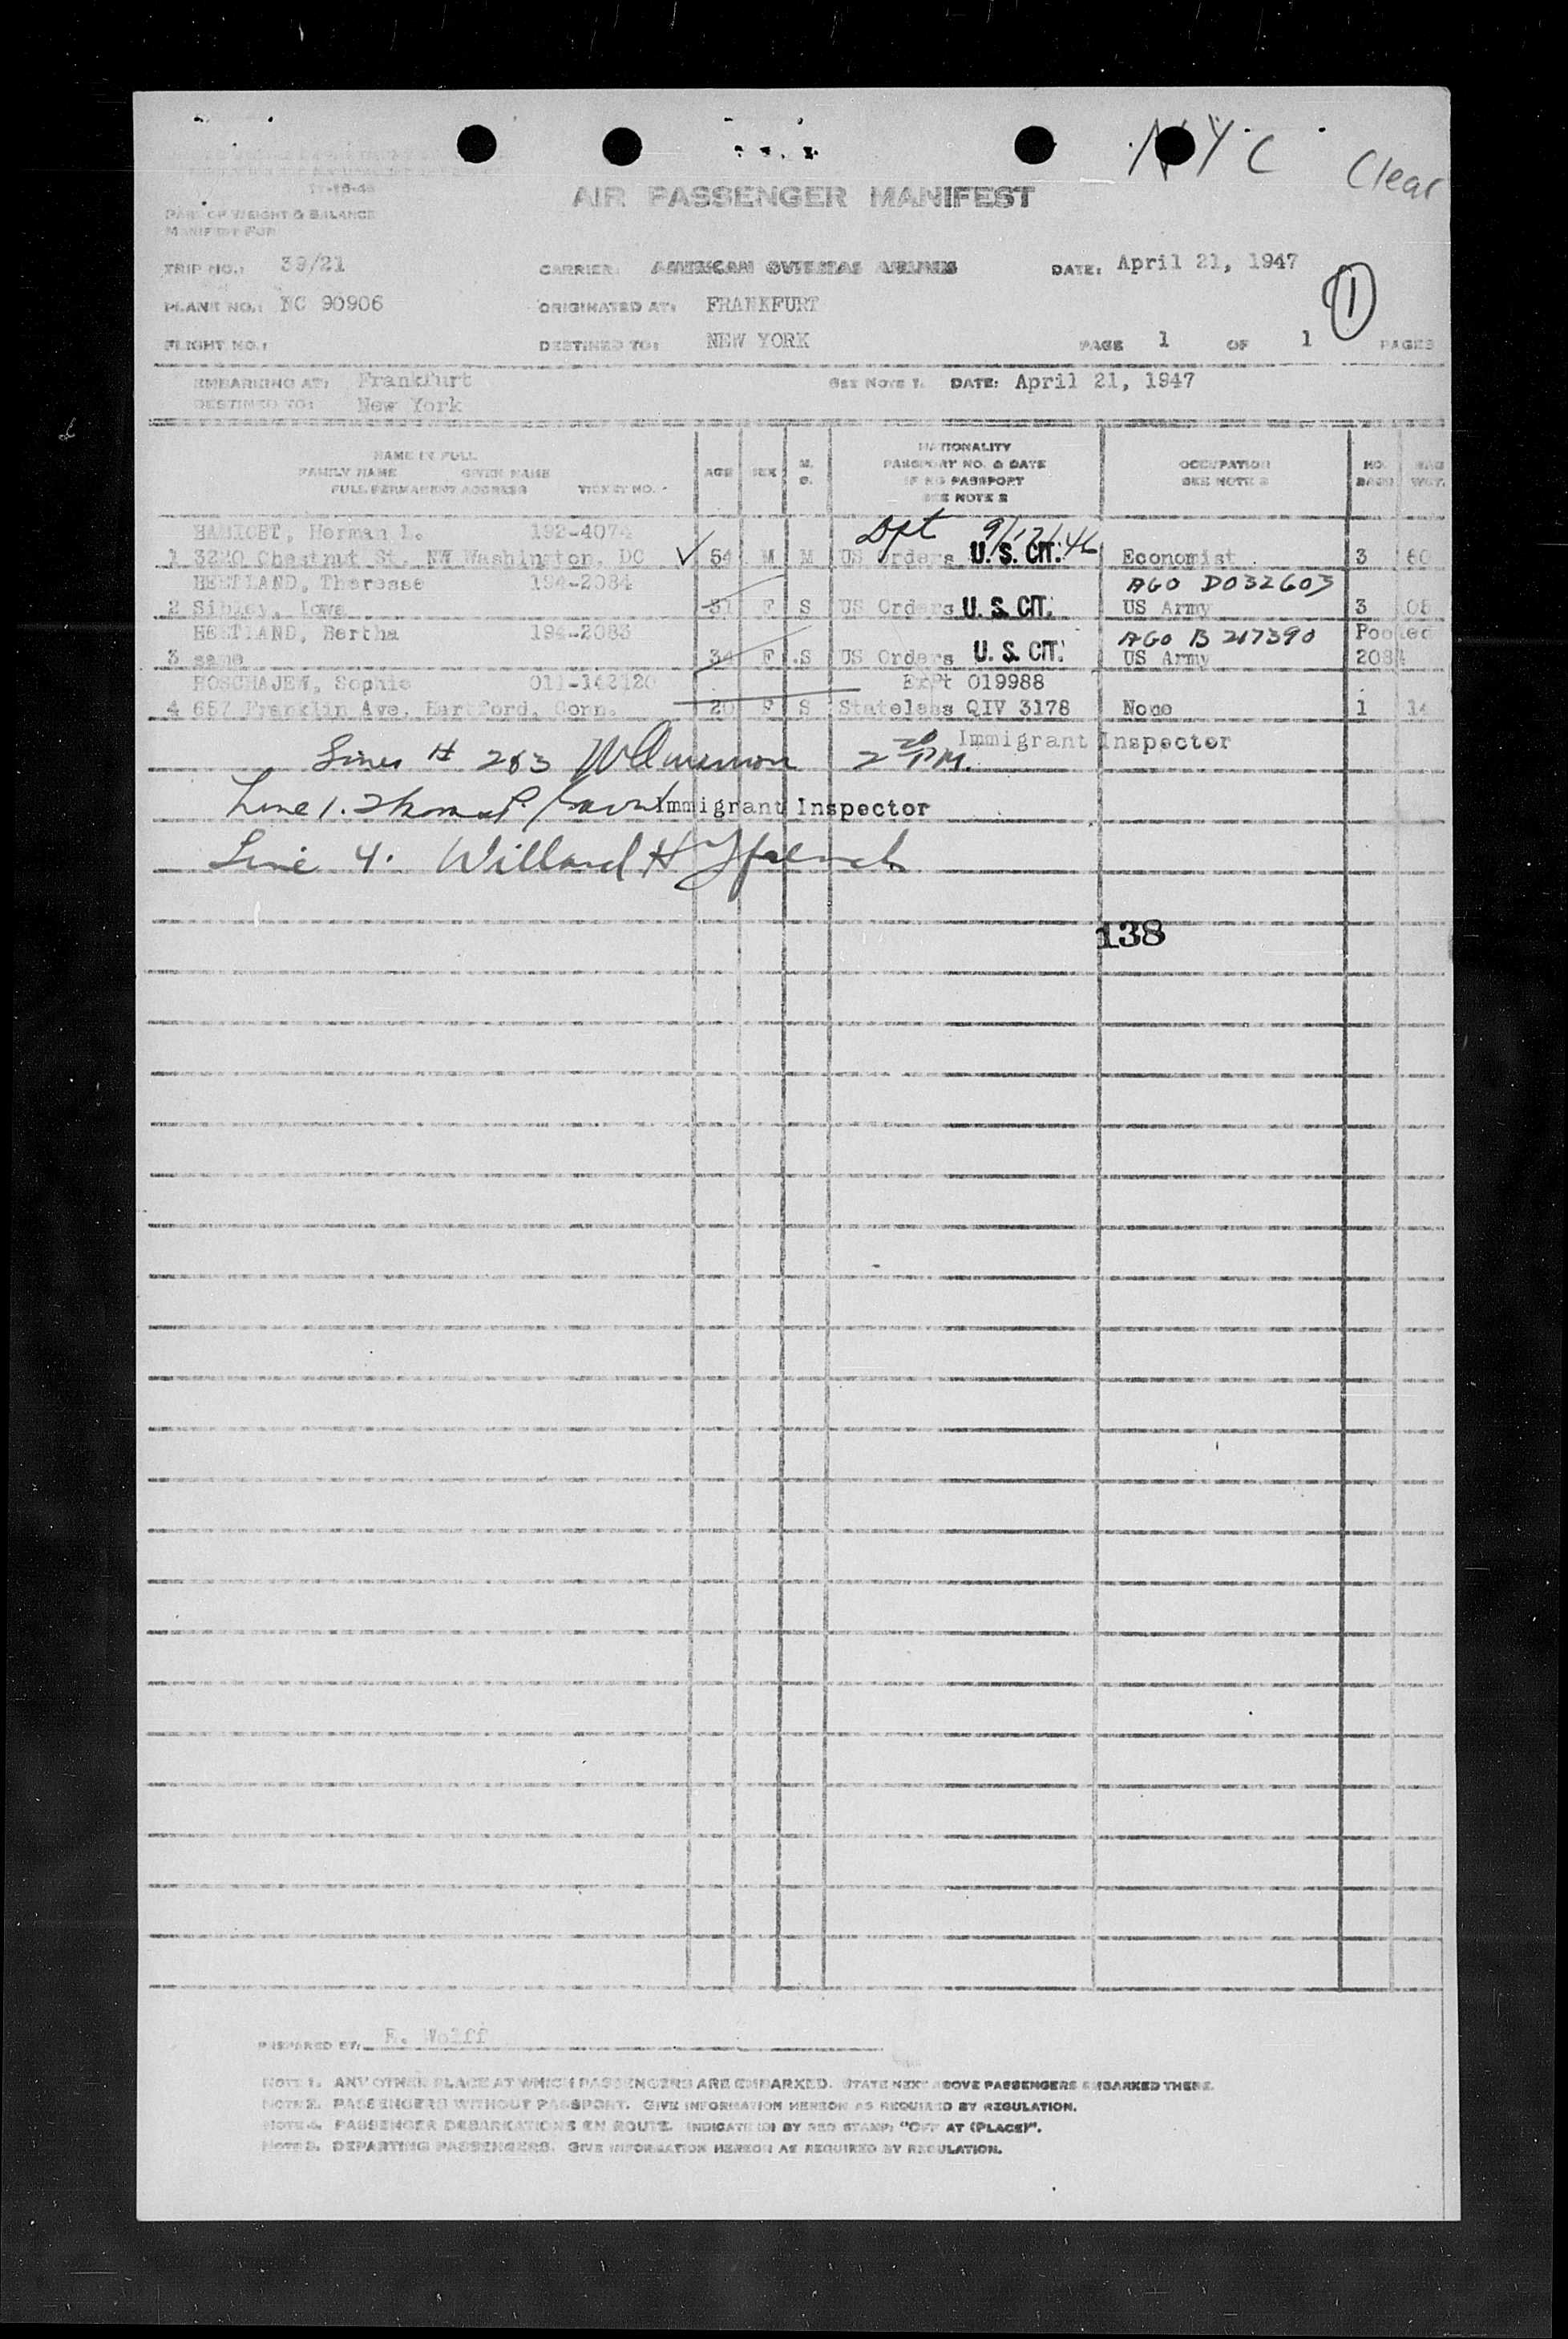 NYC Clear
11-18-46
AIR PASSENGER MANIFEST
PART OF WEIGHT & BALANCE
MANIFEST FOR
TRIP NO.: 39/21 CARRIER: AMERICAN OVERSEAS AIRLINES DATE: April 21, 1947
1
PLANE NO.: NC 90906 ORIGINATED AT: FRANKFURT
FLIGHT NO.: DESTINED TO: NEW YORK PAGE 1 OF 1 PAGES
EMBARKING AT: Frankfurt SEE NOTE 1. DATE: April 21, 1947
DESTINED TO: New York
NAME IN FULL
FAMILY NAME GIVEN NAME
FULL PERMANENT ADDRESS TICKET NO.
AGE SEX M. S.
NATIONALITY
PASSPORT NO. & DATE
IF NO PASSPORT
SEE NOTE 2
OCCUPATION
SEE NOTE 2
NO. BAGS
BAG WGT.
Herman L. 192-4074 Dpt 9/17/46
1 3220 Chestnut St. NW Washington, DC ✓ 54 M M US Orders U. S. CIT. Economist 3 60
HEETLAND, Theresse 194-2084 AGO D032603
2 Sibley, Iowa 31 F S US Orders U. S. CIT. US Army 3 108
HEETLAND, Bertha 194-2083 AGO B 217390 Pooled
3 same 34 F S US Orders U. S. CIT. US Army 2084
ROSCHAJEW, Sophie 011-142120 ExPt 019988
4 657 Franklin Ave. Hartford, Conn. 20 F S Stateless QIV 3178 None 1 14
Lines # 2&3 2 20 PM. Immigrant Inspector
Line 1. Thomas P. Immigrant Inspector
Line 4. Willard H
138
PREPARED BY: R. Wolff
NOTE 1. ANY OTHER PLACE AT WHICH PASSENGERS ARE EMBARKED. STATE NEXT ABOVE PASSENGERS EMBARKED THERE.
NOTE 2. PASSENGERS WITHOUT PASSPORT. GIVE INFORMATION HEREON AS REQUIRED BY REGULATION.
NOTE 4. PASSENGER DEBARKATIONS EN ROUTE. INDICATE BY RED STAMP: "OFF AT (PLACE)".
NOTE 3. DEPARTING PASSENGERS. GIVE INFORMATION HEREON AS REQUIRED BY REGULATION.